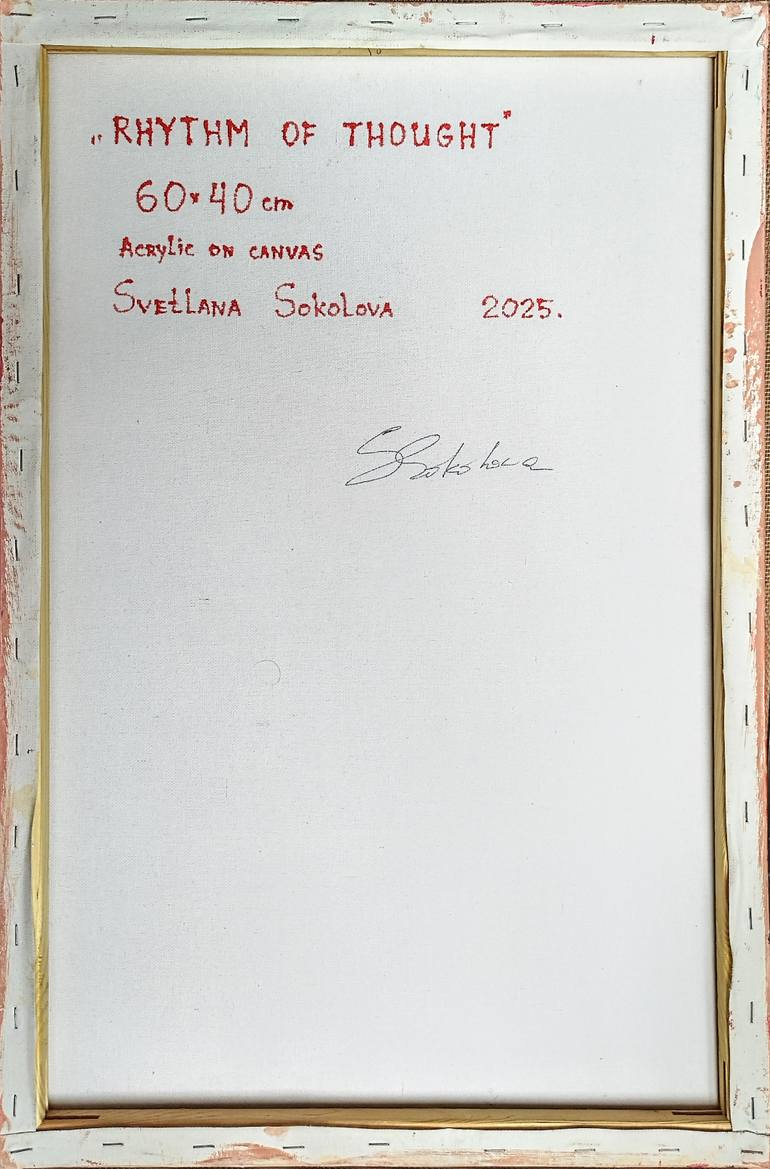 „RHYTHM OF THOUGHT"
60×40 cm
Acrylic on canvas
Svetlana Sokolova 2025.
SSokolova